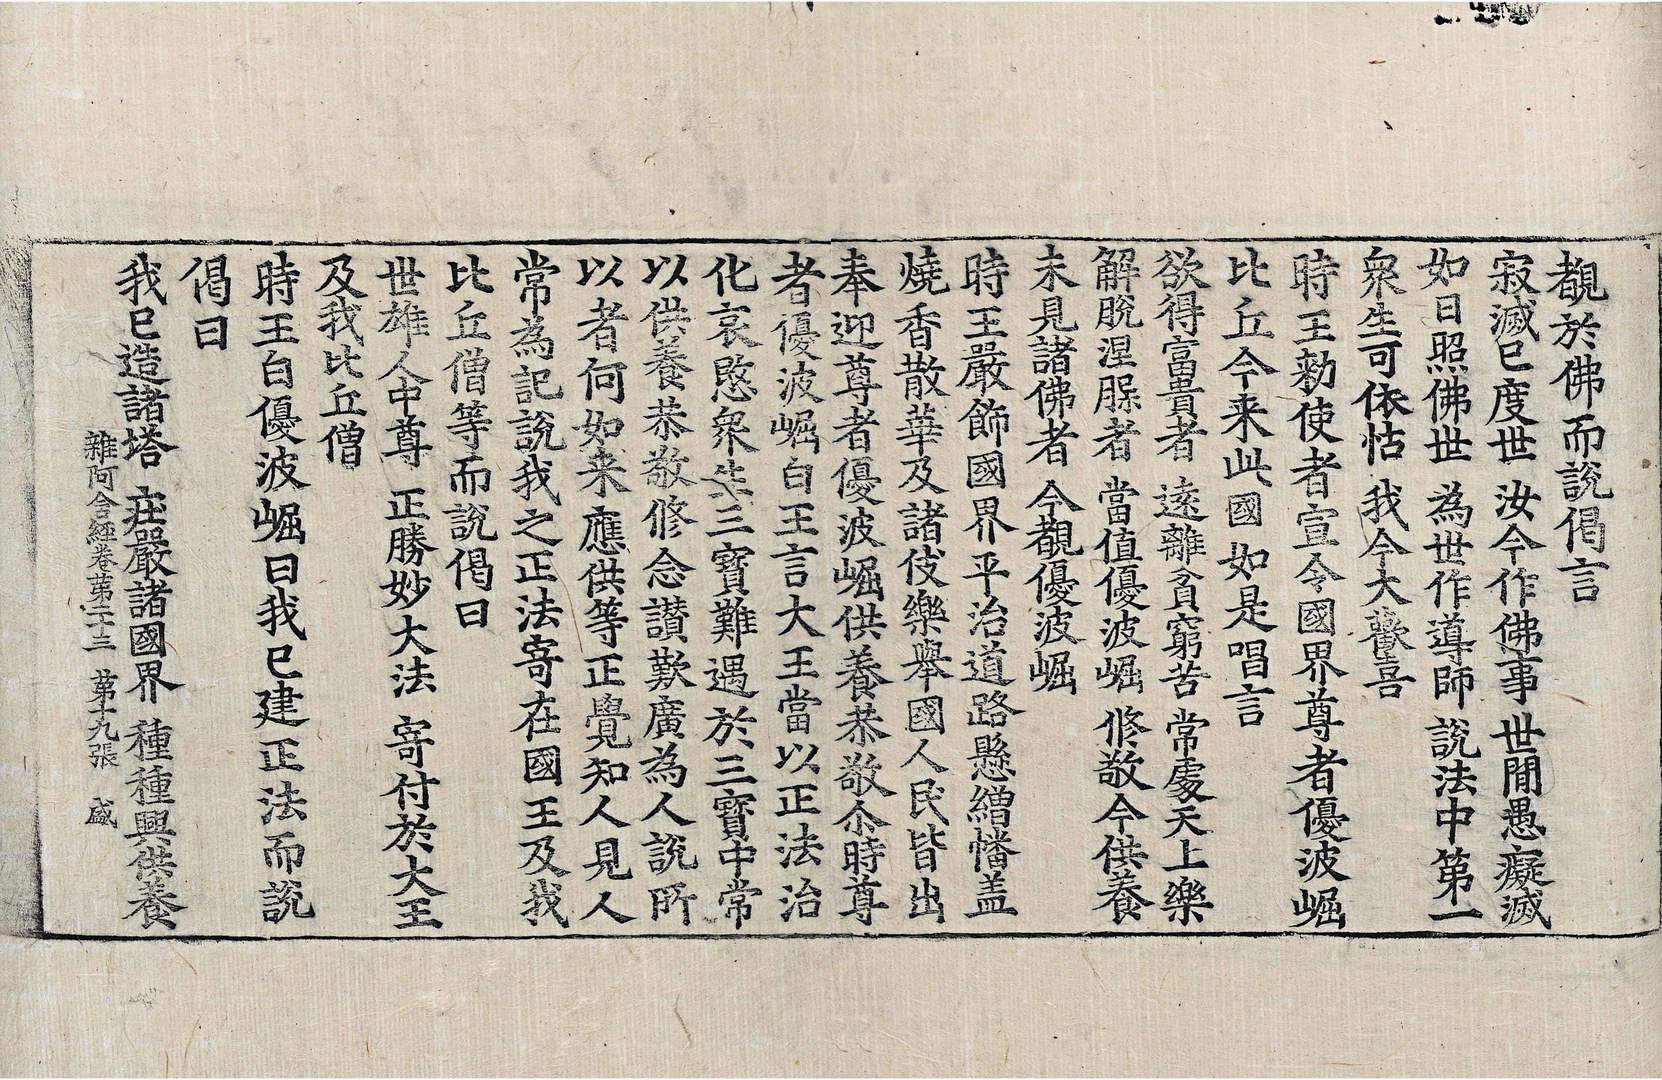 覩於佛而說偈言
寂滅已度世 汝今作佛事 世閒愚癡滅
如日照佛世 為世作導師 說法中第一
衆生可依怙 我今大歡喜
時王勑使者宣令國界尊者優波崛
比丘今来此國 如是唱言
欲得富貴者 遠離貧窮苦 常處天上樂
解脫涅槃者 當值優波崛 修敬今供養
未見諸佛者 今覩優波崛
時王嚴飾國界平治道路懸繒幡盖
燒香散華及諸伎樂舉國人民皆出
奉迎尊者優波崛供養恭敬尒時尊
者優波崛白王言大王當以正法治
化哀愍衆生三寶難遇於三寶中常
以供養恭敬修念讃歎廣為人說所
以者何如来應供等正覺知人見人
常為記說我之正法寄在國王及我
比丘僧等而說偈曰
世雄人中尊 正勝妙大法 寄付於大王
及我比丘僧
時王白優波崛曰我已建正法而說
偈曰
我已造諸塔 莊嚴諸國界 種種興供養
雜阿含經卷第二十三 第十九張 盛